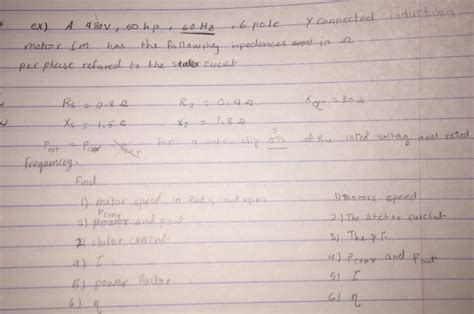 ex) A 480V, 50 hp, 60 Hz, 6 pole Y connected induction
motor Im has the following inpedences in Ω
per phase refared to the stator cucist
Rs = 0.8Ω R2 = 0.4Ω X = 30Ω
Xs = 1.5Ω X2 = 1.8Ω
Prot = Pcore for a rotor slip of the rated voltag and rated
frequency.
Find
1) motor speed in Rad/s and rpm
2) Pconv power and Pout
3) stator current
4) τ
5) power factor
6) η
1) motors speed
2) The stator cucist
3) The p.f.
4) Pconv and Pout
5) τ
6) η